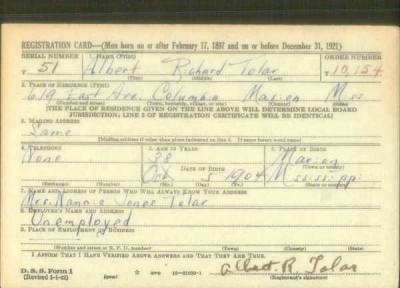 REGISTRATION CARD—(Men born on or after February 17, 1897 and on or before December 31, 1921)
SERIAL NUMBER 1. NAME (Print) ORDER NUMBER
51 Albert Richard Tolar 10,154
(First) (Middle) (Last)
2. PLACE OF RESIDENCE (Print)
619 East Ave. Columbia Marion Miss
(Number and street) (Town, township, village, or city) (County) (State)
[THE PLACE OF RESIDENCE GIVEN ON THE LINE ABOVE WILL DETERMINE LOCAL BOARD
JURISDICTION; LINE 2 OF REGISTRATION CERTIFICATE WILL BE IDENTICAL]
3. MAILING ADDRESS
Same
[Mailing address if other than place indicated on line 2. If same insert word same]
4. TELEPHONE 5. AGE IN YEARS 6. PLACE OF BIRTH
None 38 Marion
DATE OF BIRTH (Town or county)
Oct 5 1904 Mississippi
(Exchange) (Number) (Mo.) (Day) (Yr.) (State or country)
7. NAME AND ADDRESS OF PERSON WHO WILL ALWAYS KNOW YOUR ADDRESS
Mrs. Nannie Jones Tolar
8. EMPLOYER'S NAME AND ADDRESS
Unemployed
9. PLACE OF EMPLOYMENT OR BUSINESS
(Number and street or R. F. D. number) (Town) (County) (State)
I AFFIRM THAT I HAVE VERIFIED ABOVE ANSWERS AND THAT THEY ARE TRUE.
D. S. S. Form 1
(Revised 1-1-42) (over)
Albert R. Tolar
(Registrant's signature)